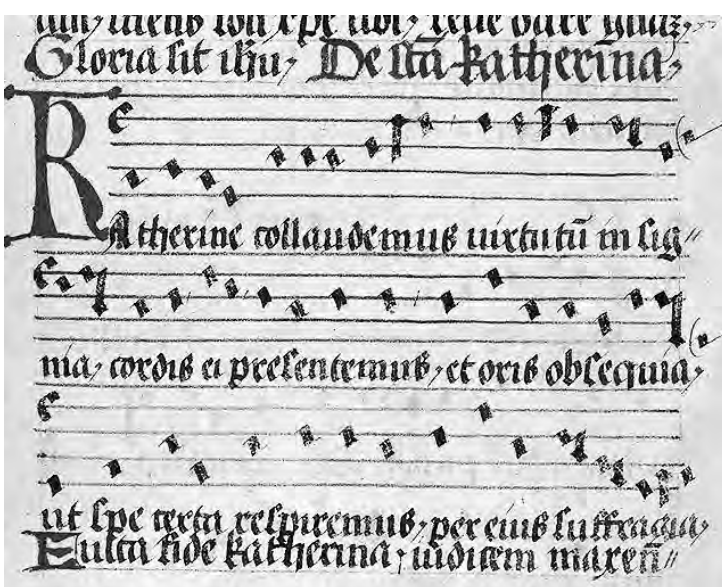 Gloria sit ihu, De scā katherina,
Katherine collaudemus uirtutū in sig〃
nia, cordis ei presentemus, et oris obsequia,
ut spe certa respiremus, per eius suffragia,
Fulta fide katherina, iudicem maxen̄〃